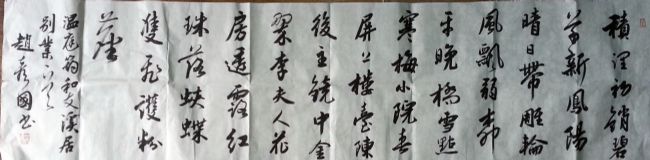 積潤初銷碧
草新鳳陽
晴日帶雕輪
風飄弱柳
平晚橋雪點
寒梅小院春
屏上樓臺陳
後主鏡中金
翠李夫人花
房透露紅
珠落蛺蝶
雙飛護粉
塵
溫庭筠和友溪居
別業
趙國書